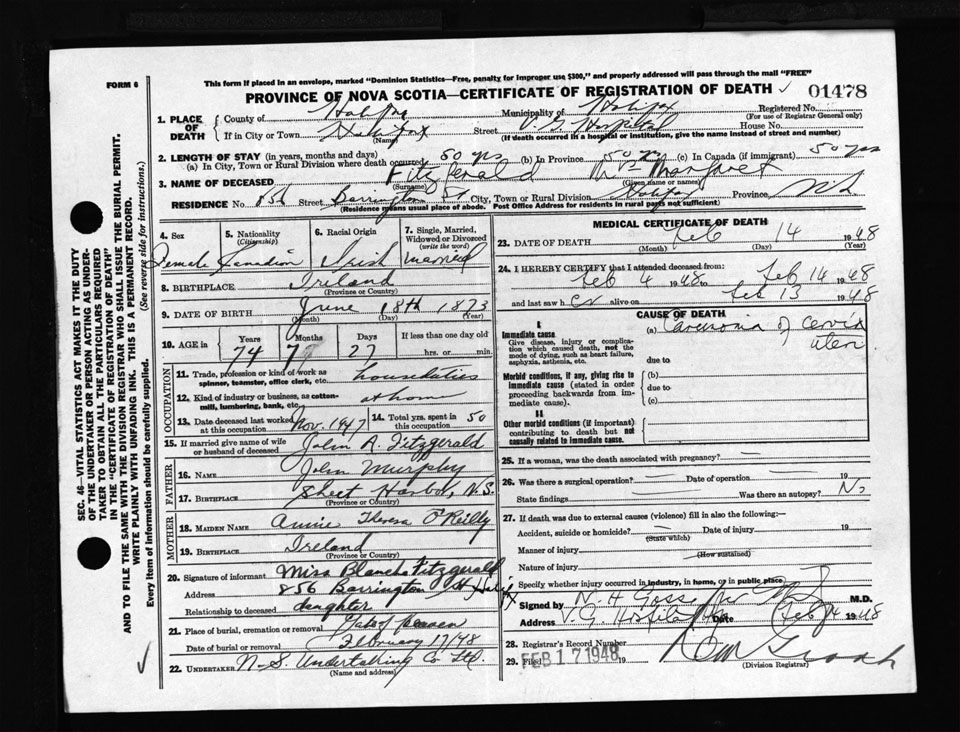 FORM 6
This form if placed in an envelope, marked "Dominion Statistics—Free, penalty for improper use $300," and properly addressed will pass through the mail "FREE"
PROVINCE OF NOVA SCOTIA—CERTIFICATE OF REGISTRATION OF DEATH ✓ 01478
1. PLACE OF DEATH
County of Halifax Municipality of Halifax Registered No.
(For use of Registrar General only)
If in City or Town Halifax Street V.G. Hospital House No.
(Name) (If death occurred in a hospital or institution, give the name instead of street and number)
2. LENGTH OF STAY (in years, months and days)
(a) In City, Town or Rural Division where death occurred 50 yrs (b) In Province 50 yrs (c) In Canada (if immigrant) 50 yrs
3. NAME OF DECEASED Fitzgerald Margaret
(Surname) (Given name or names)
RESIDENCE No. 856 Street Barrington St City, Town or Rural Division Halifax Province N.S.
(Residence means usual place of abode. Post Office Address for residents in rural parts not sufficient)
4. Sex 5. Nationality (Citizenship) 6. Racial Origin 7. Single, Married, Widowed or Divorced (write the word)
Female Canadian Irish Married
8. BIRTHPLACE Ireland
(Province or Country)
9. DATE OF BIRTH June 18th 1873
(Month) (Day) (Year)
10. AGE in Years Months Days If less than one day old
74 7 27 hrs. or min.
OCCUPATION
11. Trade, profession or kind of work as spinner, teamster, office clerk, etc. houseduties
12. Kind of industry or business, as cotton-mill, lumbering, bank, etc. at home
13. Date deceased last worked at this occupation Nov. 1947 14. Total yrs. spent in this occupation 50
15. If married give name of wife or husband of deceased John A. Fitzgerald
FATHER
16. NAME John Murphy
17. BIRTHPLACE Sheet Harbor, N.S.
(Province or Country)
MOTHER
18. MAIDEN NAME Annie Theresa O'Reilly
19. BIRTHPLACE Ireland
(Province or Country)
20. Signature of informant Miss Blanche Fitzgerald
Address 856 Barrington St Halifx
Relationship to deceased daughter
21. Place of burial, cremation or removal Gate of Heaven
Date of burial or removal February 17/48
22. UNDERTAKER N.S. Undertaking Co Ltd.
(Name and address)
MEDICAL CERTIFICATE OF DEATH
23. DATE OF DEATH Feb 14 1948
(Month) (Day) (Year)
24. I HEREBY CERTIFY that I attended deceased from:
Feb 4 1948 to Feb 14 1948
and last saw h er alive on Feb 13 1948
CAUSE OF DEATH
I.
Immediate cause
Give disease, injury or complication which caused death, not the mode of dying, such as heart failure, asphyxia, asthenia, etc.
(a) Carcinoma of Cervix uteri
due to
Morbid conditions, if any, giving rise to immediate cause (stated in order proceeding backwards from immediate cause).
(b)
due to
(c)
II
Other morbid conditions (if important) contributing to death but not causally related to immediate cause.
25. If a woman, was the death associated with pregnancy? —
26. Was there a surgical operation? — Date of operation 19
State findings Was there an autopsy? No
27. If death was due to external causes (violence) fill in also the following:—
Accident, suicide or homicide? — Date of injury 19
(State which)
Manner of injury
(How sustained)
Nature of injury
Specify whether injury occurred in industry, in home, or in public place
Signed by N. H. Goss M.D.
Address V.G. Hospital Date Feb 14 1948
28. Registrar's Record Number
29. Filed FEB 17 1948 19
(Division Registrar)
SEC. 46—VITAL STATISTICS ACT MAKES IT THE DUTY
OF THE UNDERTAKER OR PERSON ACTING AS UNDERTAKER TO OBTAIN ALL THE PARTICULARS REQUIRED
IN THE "CERTIFICATE OF REGISTRATION OF DEATH"
AND TO FILE THE SAME WITH THE DIVISION REGISTRAR WHO SHALL ISSUE THE BURIAL PERMIT.
WRITE PLAINLY WITH UNFADING INK. THIS IS A PERMANENT RECORD.
Every item of information should be carefully supplied. (See reverse side for instructions.)